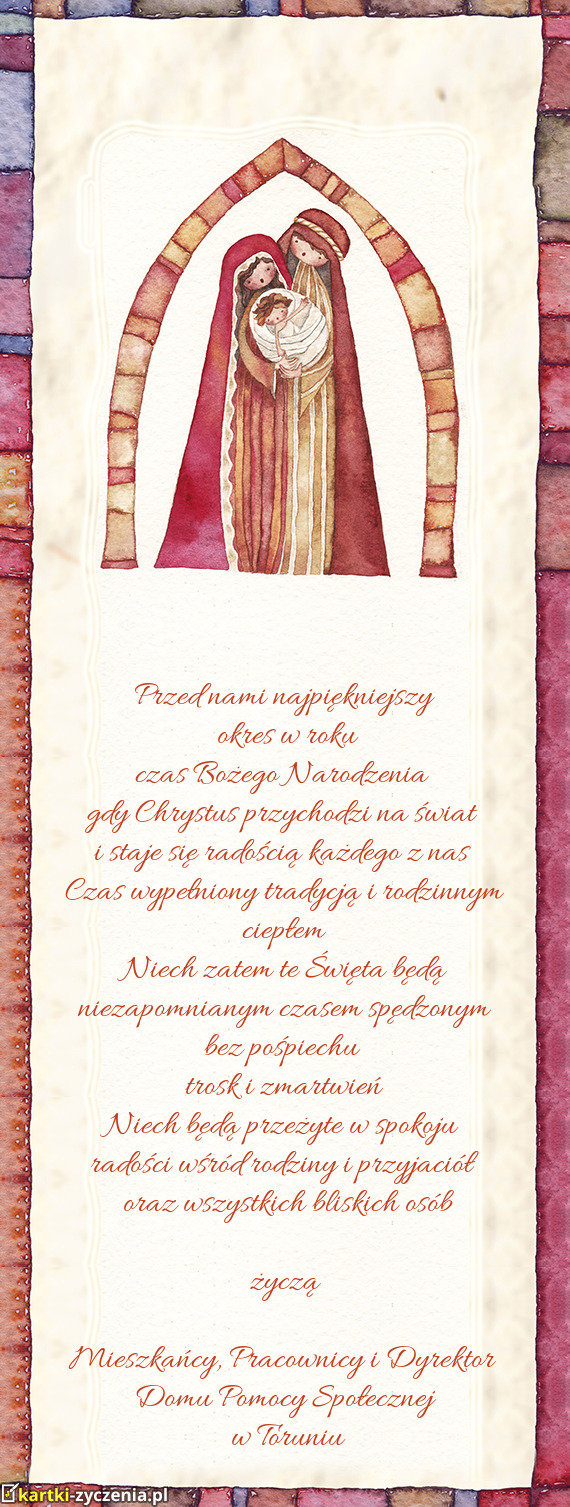 Przed nami najpiękniejszy
okres w roku
czas Bożego Narodzenia
gdy Chrystus przychodzi na świat
i staje się radością każdego z nas
Czas wypełniony tradycją i rodzinnym
ciepłem
Niech zatem te Święta będą
niezapomnianym czasem spędzonym
bez pośpiechu
trosk i zmartwień
Niech będą przeżyte w spokoju
radości wśród rodziny i przyjaciół
oraz wszystkich bliskich osób
życzą
Mieszkańcy, Pracownicy i Dyrektor
Domu Pomocy Społecznej
w Toruniu
kartki-zyczenia.pl